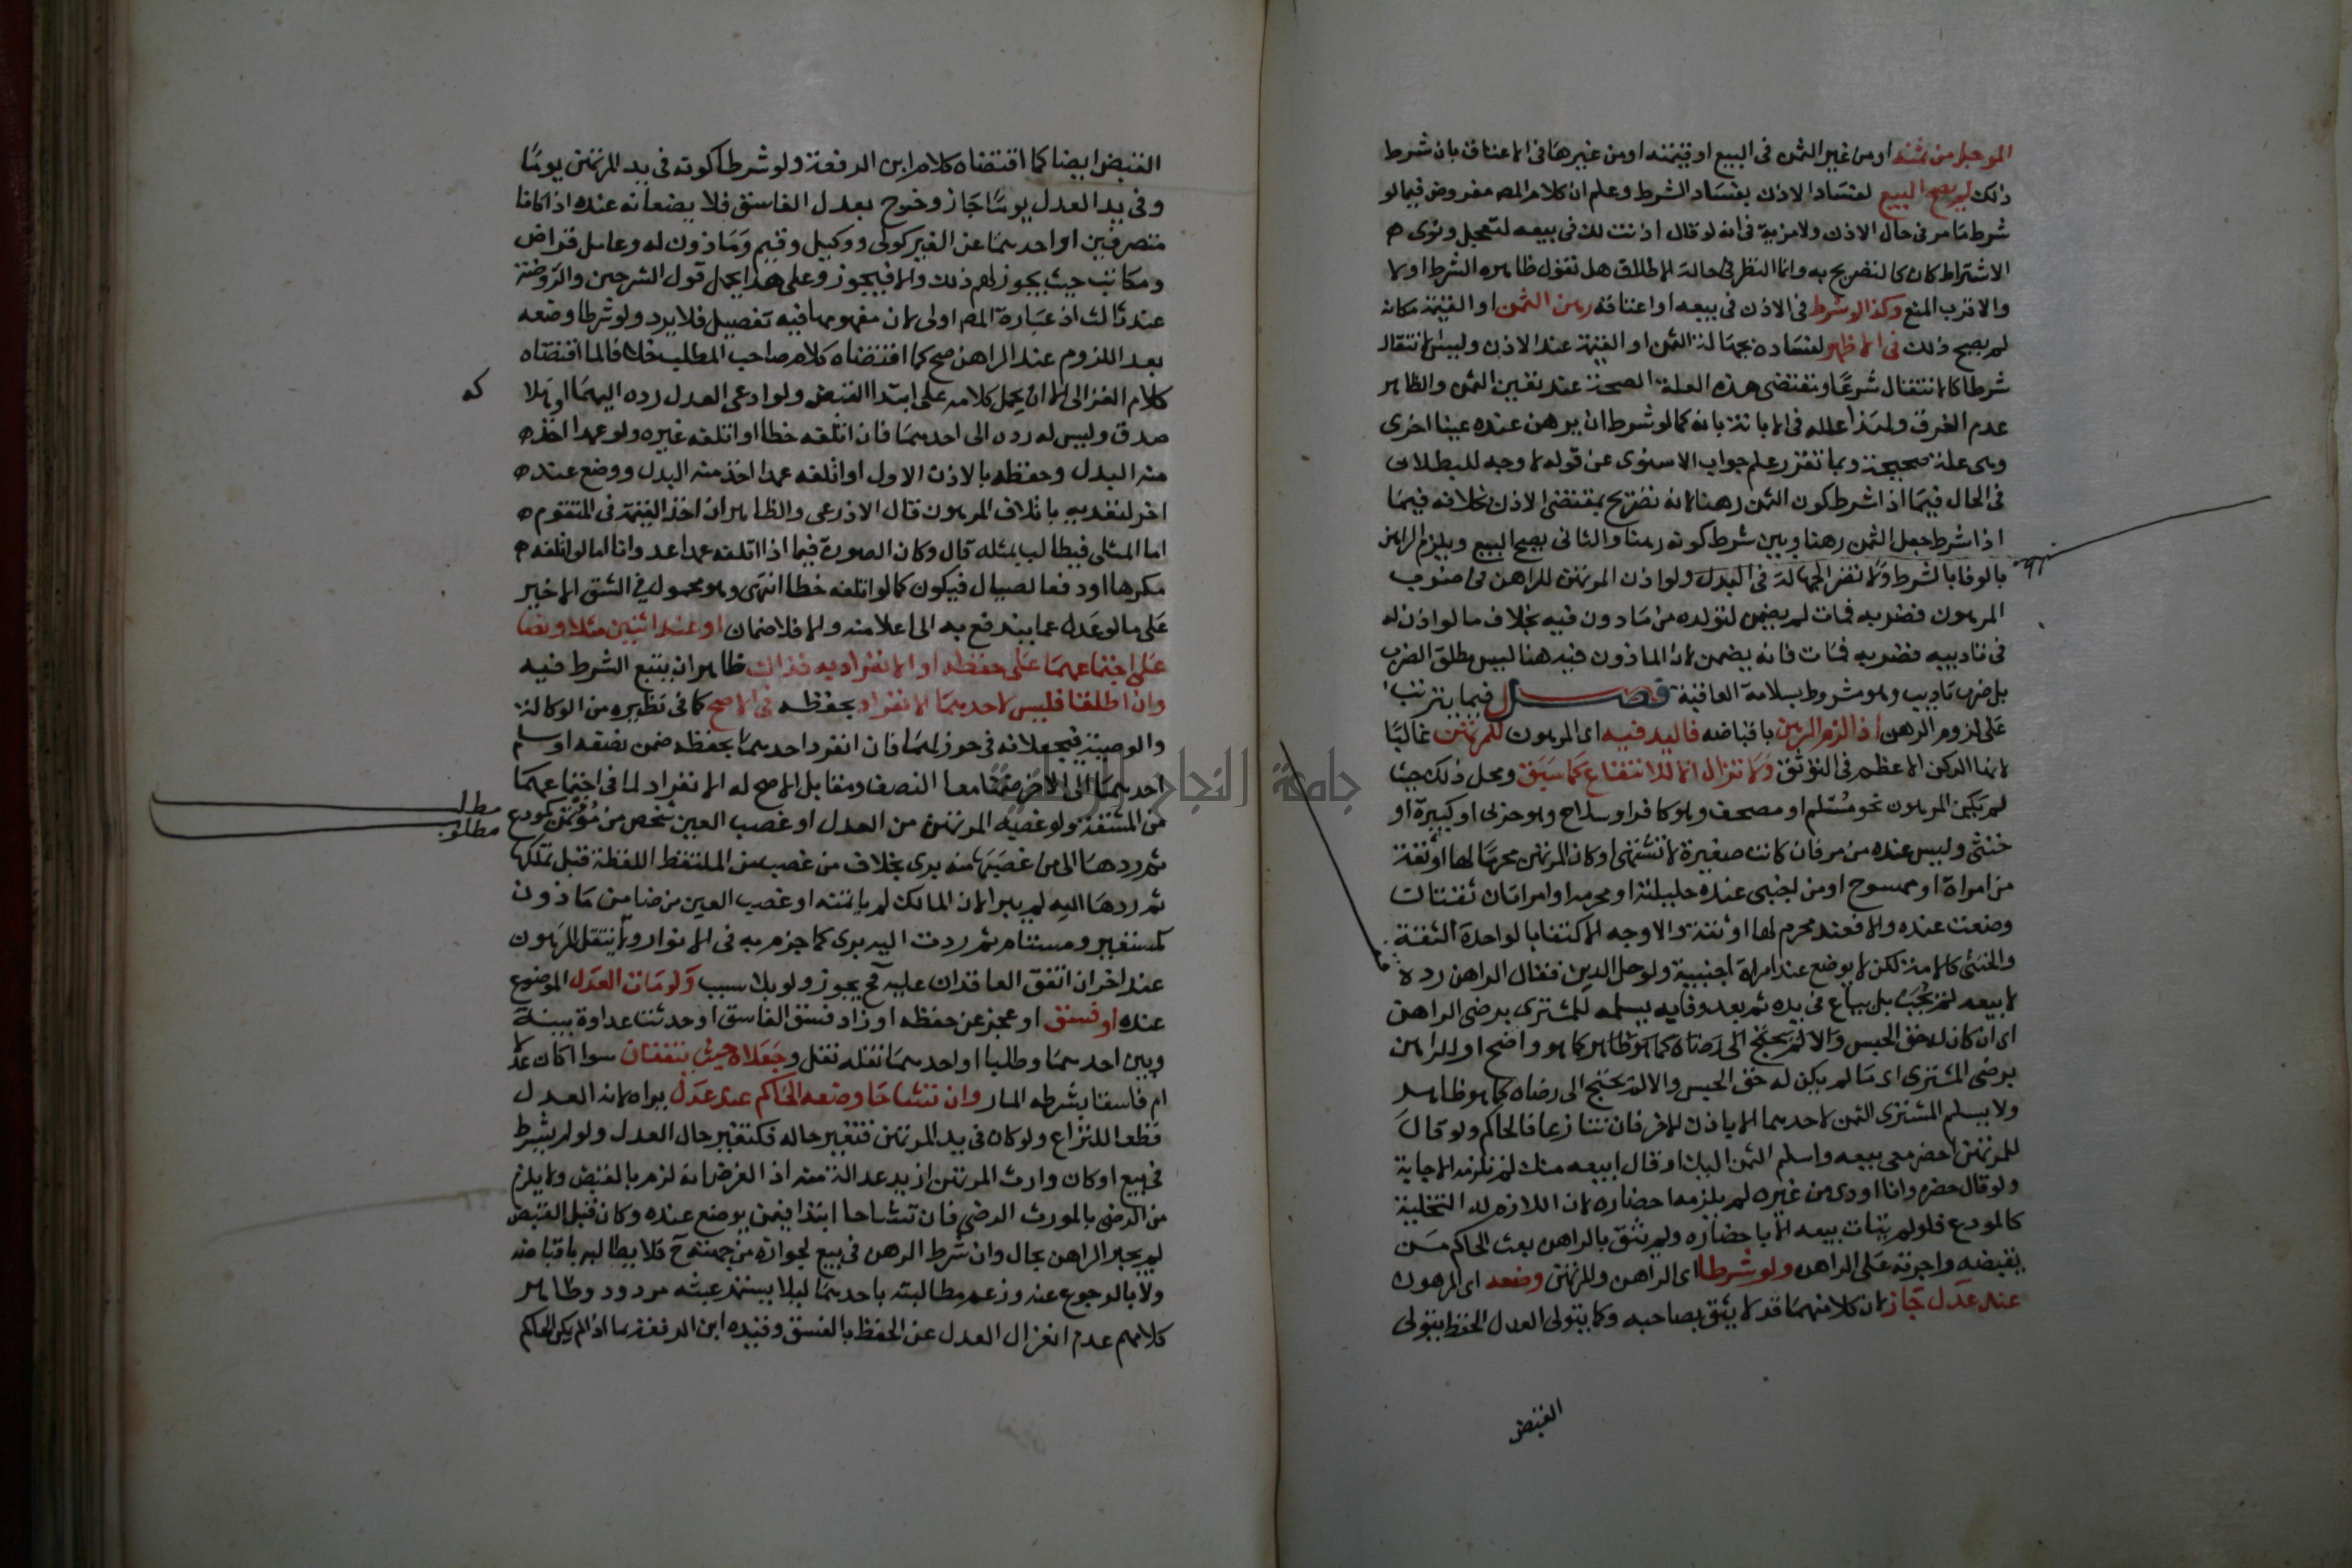 الموجل من ثمنه او من غير الثمن فى البيع او قيمته او من غيرها فى الاعتاق بان شرط
ذلك لم يصح البيع لفساد الاذن بفساد الشرط وعلم ان كلام المص مفروض فيما لو
شرط ما مر فى حال الاذن ولا مزية فى انه لو قال اذنت لك فى بيعه لتعجل ونوى
الاشتراط كان كالتصريح به وانما النظر فى حالة الاطلاق هل نقول ظاهره الشرط او لا
والاقرب المنع وكذا لو شرط فى الاذن فى بيعه او اعتاقه رهن الثمن او القيمة مكانه
لم يصح ذلك فى الاظهر لفساده بجهالة الثمن او القيمة عند الاذن وليس الانتقال
شرطا كالانتقال شرعا وتقتضى هذه العلة الصحة عند تعين الثمن والظاهر
عدم الفرق ولهذا علله فى الابانة بانه كما لو شرط ان يرهن عنده عينا اخرى
وهى علة صحيحة وبما تقرر علم جواب الاسنوى عن قوله لا وجه للبطلان
فى الحال فيما اذا شرط كون الثمن رهنا لانه تصريح بمقتضى الاذن بخلافه فيما
اذا شرط جعل الثمن رهنا وبين شرط كونه رهنا والثانى يصح البيع ويلزم الراهن
بالوفا بالشرط ولا تضر الجهالة فى البدل ولو اذن المرتهن للراهن فى ضرب
المرهون فضربه فمات لم يضمن لتولده من ماذون فيه بخلاف ما لو اذن له
فى تاديبه فضربه فمات فانه يضمن لان الماذون فيه هنا ليس مطلق الضرب
بل ضرب تاديب وهو مشروط بسلامة العاقبة فصل فيما يترتب
على لزوم الرهن اذا لزم الرهن باقباضه فاليد فيه اى المرهون للمرتهن غالبا
لانها الركن الاعظم فى التوثق ولا تزال الا للانتفاع كما سبق ومحل ذلك حيث
لم يكن المرهون نحو مسلم او مصحف وهو كافر او سلاح وهو حربى او كبيرة او
خنثى وليس عنده من مر فان كانت صغيرة لا تشتهى او كان المرتهن محرما لها او ثقة
من امراة او ممسوح او من اجنبى عنده حليلته او محرمه او امراتان ثقتان
وضعت عنده والا فعند محرم لها او ثقة والاوجه الاكتفا بالواحدة الثقة
والخنثى كالامة لكن لا يوضع عند امراة اجنبية ولو حل الدين فقال الراهن رده
لابيعه لم يجب بل يباع فى يده ثم بعد وفايه يسلمه للمشترى برضى الراهن
اى ان كان له حق الحبس والا لم يحتج الى رضاه كما هو ظاهر كما هو واضح او للراهن
برضى المشترى اى ما لم يكن له حق الحبس والا لم يحتج الى رضاه كما هو ظاهر
ولا يسلم المشترى الثمن لاحدهما الا باذن للاخر فان تنازعا فالحاكم ولو قال
للمرتهن احضر معى بيعه واسلم الثمن اليك او قال ابيعه منك لم تلزمه الاجابة
ولو قال حضره وانا اودى من غيره لم يلزمه احضاره لان اللازم له التخلية
كالمودع فلو لم يتات بيعه الا باحضاره ولم يثق بالراهن بعث الحاكم من
يقبضه واجرته على الراهن ولو شرطا اى الراهن والمرتهن وضعه اى المرهون
عند عدل جاز لان كلا منهما قد لا يثق بصاحبه وكما يتولى العدل الحفظ يتولى
القبض
القبض ايضا كما اقتضاه كلام ابن الرفعة ولو شرطا كونه فى يد المرتهن يوما
وفى يد العدل يوما جاز وخرج بعدل الفاسق فلا يضعانه عنده اذا كانا
متصرفين او احدهما عن الغير كولى ووكيل وقيم وماذون له وعامل قراض
ومكاتب حيث يجوز لهم ذلك والا فيجوز وعلى هذا يحمل قول الشرحين والروضة
عند ثالث اذ عبارة المص اولى لان مفهومها فيه تفصيل فلا يرد ولو شرطا وضعه
بعد اللزوم عند الراهن صح كما اقتضاه كلام صاحب المطلب خلافا لما اقتضاه
كلام الغزالى الا ان يحمل كلامه على ابتدا القبض ولو ادعى العدل رده اليهما او هلاكه
صدق وليس له رده الى احدهما فان اتلفه خطا او اتلفه غيره ولو عمدا اخذ
منه البدل وحفظه بالاذن الاول او اتلفه عمدا اخذ منه البدل ووضع عند
اخر لتعديه باتلاف المرهون قال الاذرعى والظاهر ان اخذ القيمة فى المتقوم
اما المثلى فيطالب بمثله قال وكان الصورة فيما اذا اتلفه عمدا عدوانا اما لو اتلفه
مكرها او دفعا لصيال فيكون كما لو اتلفه خطا انتهى وهو محمول فى الشق الاخير
على ما لو عدل عما يندفع به الى اعلا منه والا فلا ضمان او عند اثنين مثلا ونصا
على اجتماعهما على حفظه او الانفراد به فذاك ظاهر ان يتبع الشرط فيه
وان اطلقا فليس لاحدهما الانفراد بحفظه فى الاصح كما فى نظيره من الوكالة
والوصية فيجعلانه فى حرز لهما فان انفرد احدهما بحفظه ضمن نصفه او سلم
احدهما الى الاخر ضمنا معا النصف ومقابل الاصح له الانفراد لما فى اجتماعهما
من المشقة ولو غصبه المرتهن من العدل او غصب العين شخص من مؤتمن كمودع
ثم ردها الى من غصبها منه برى بخلاف من غصب من الملتقط اللقطة قبل تملكها
ثم ردها اليه لم يبرا لان المالك لم ياتمنه او غصب العين من ضامن ماذون
كمستعير ومستام ثم ردت اليه برى كما جزم به فى الانوار ولا ينتقل المرهون
عند اخر ان اتفق العاقدان عليه فح يجوز ولو بلا سبب ولو مات العدل الموضوع
عنده او فسق او عجز عن حفظه او زاد فسق الفاسق او حدثت عداوة بينه
وبين احدهما وطلبا او احدهما نقله نقل وجعلاه حيث يتفقان سوا اكان عدلا
ام فاسقا بشرطه المار وان تشاحا وضعه الحاكم عند عدل يراه لانه العدل
قطعا للنزاع ولو كان فى يد المرتهن فتغير حاله فكتغير حال العدل ولو لم يشرط
فى بيع او كان وارث المرتهن ازيد عدالة منه اذ الفرض انه لزم بالقبض ولا يلزم
من الرضى بالمورث الرضى فان تشاحا ابتدا فيمن يوضع عنده وكان قبل القبض
لم يجبر الراهن بحال وان شرط الرهن فى بيع لجوازه من جهته ح فلا يطالب باقباضه
ولا بالرجوع عنه وزعم مطالبته باحدهما ليلا يستمر عبثه مردود وظاهر
كلامهم عدم انعزال العدل عن الحفظ بالفسق وقيده ابن الرفعة بما اذا لم يكن الحاكم
كه
مطلب
مطلوب
جامعة النجاح الوطنية